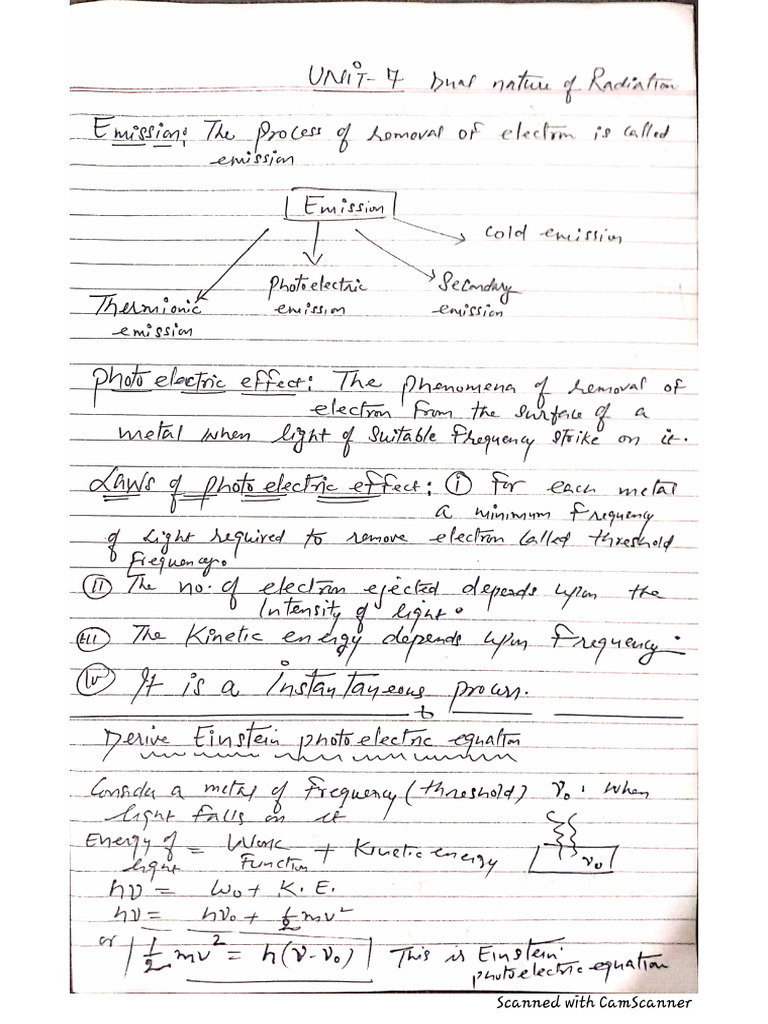 UNIT-7 Dual nature of Radiation
Emission: The process of removal of electron is called
emission
Emission
Cold emission
Photoelectric
emission
Secondary
emission
Thermionic
emission
Photo electric effect: The phenomena of removal of
electron from the surface of a
metal when light of suitable frequency strike on it.
Laws of photo electric effect: (i) For each metal
a minimum frequency
of light required to remove electron called threshold
frequency.
(ii) The no. of electron ejected depends upon the
Intensity of light.
(iii) The Kinetic energy depends upon frequency.
(iv) It is a instantaneous process.
Derive Einstein photoelectric equation
Consider a metal of frequency (threshold) ν₀. When
light falls on it
Energy of light = Work Function + Kinetic energy
ν₀
hν = W₀ + K.E.
hν = hν₀ + ½mv²
or ½mv² = h(ν-ν₀) This is Einstein
photoelectric equation
Scanned with CamScanner